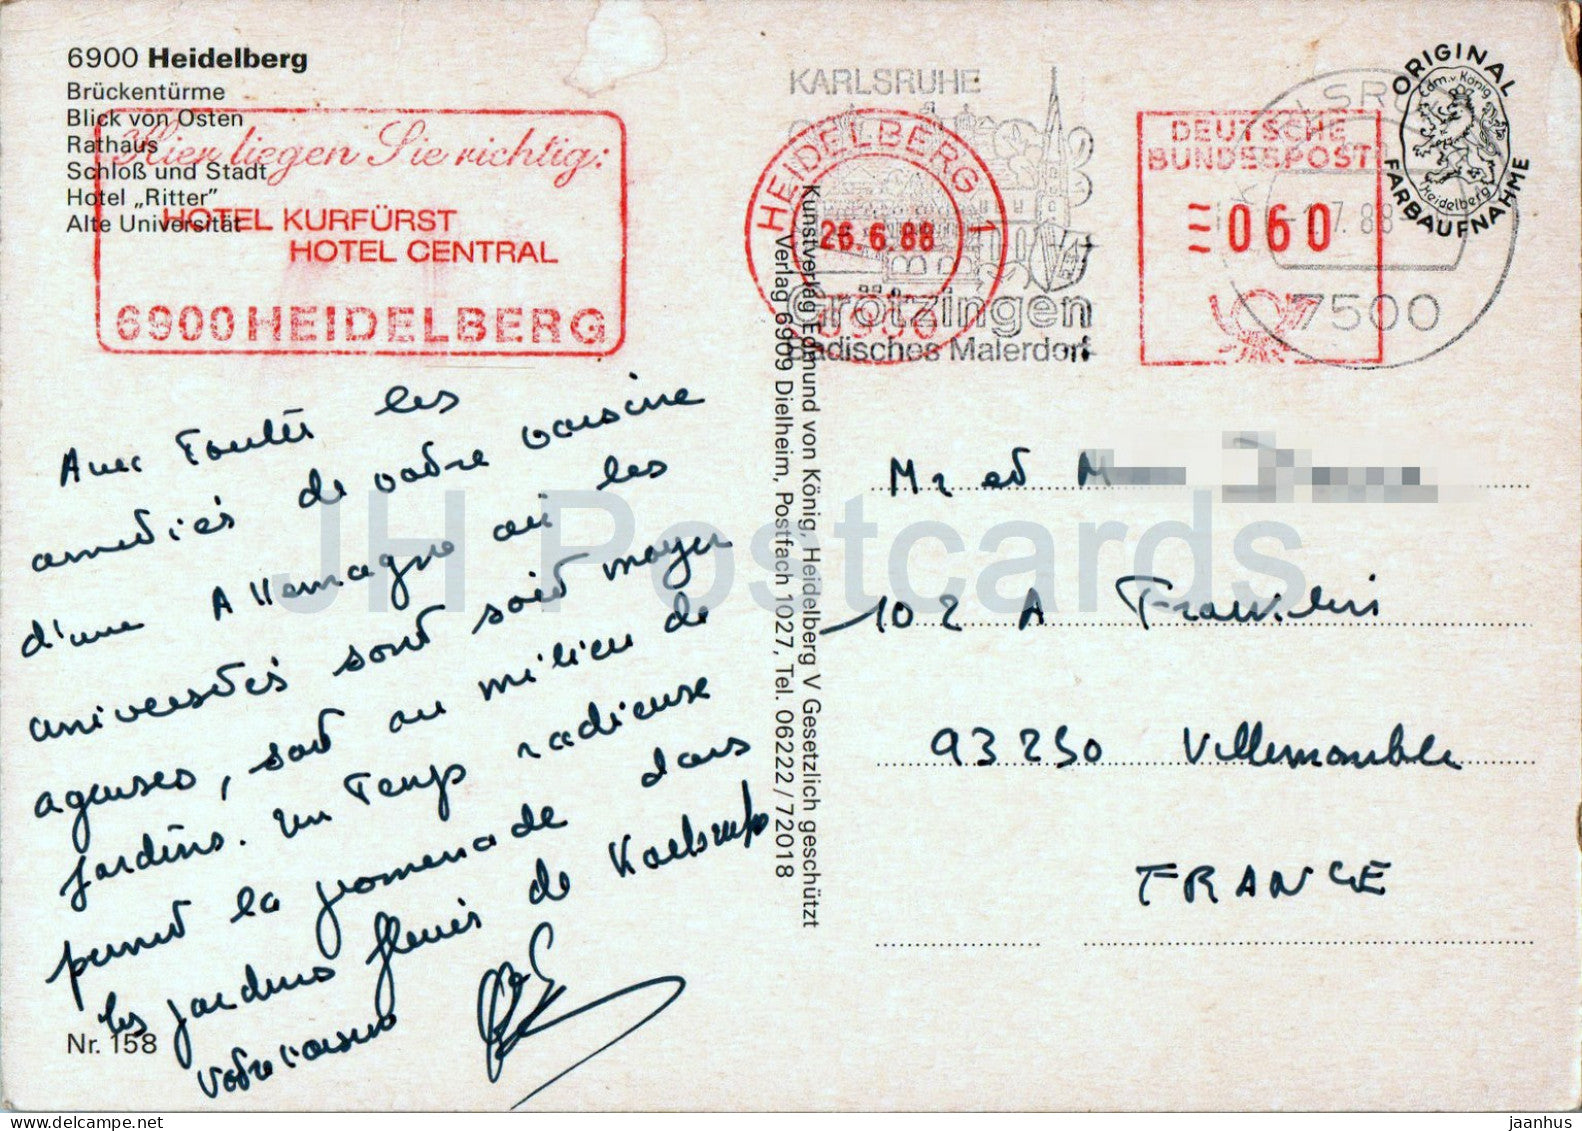 6900 Heidelberg
Brückentürme
Blick von Osten
Rathaus
Schloß und Stadt
Hotel „Ritter”
Alte Universität
Hier liegen Sie richtig:
HOTEL KURFÜRST
HOTEL CENTRAL
6900 HEIDELBERG
KARLSRUHE
Grötzingen
Badisches Malerdorf
HEIDELBERG 1
26.6.88
6900
DEUTSCHE
BUNDESPOST
060
7.88
7500
ORIGINAL
Edm. v. König
Heidelberg
FARBAUFNAHME
Avec toutes les
amitiés de votre voisine
d'une Allemagne où les
universités sont soit moyen
ageuses, soit au milieu de
jardins. Un temps radieuse
permet la promenade dans
les jardins fleuris de Karlsruhe
Votre voisine
Nr. 158
Kunstverlag Edmund von König, Heidelberg V Gesetzlich geschützt
Verlag 6909 Dielheim, Postfach 1027, Tel. 06222/72018
Mr et M
102 A
93250 Villemomble
FRANCE
JH Postcards
www.delcampe.net
jaanhus